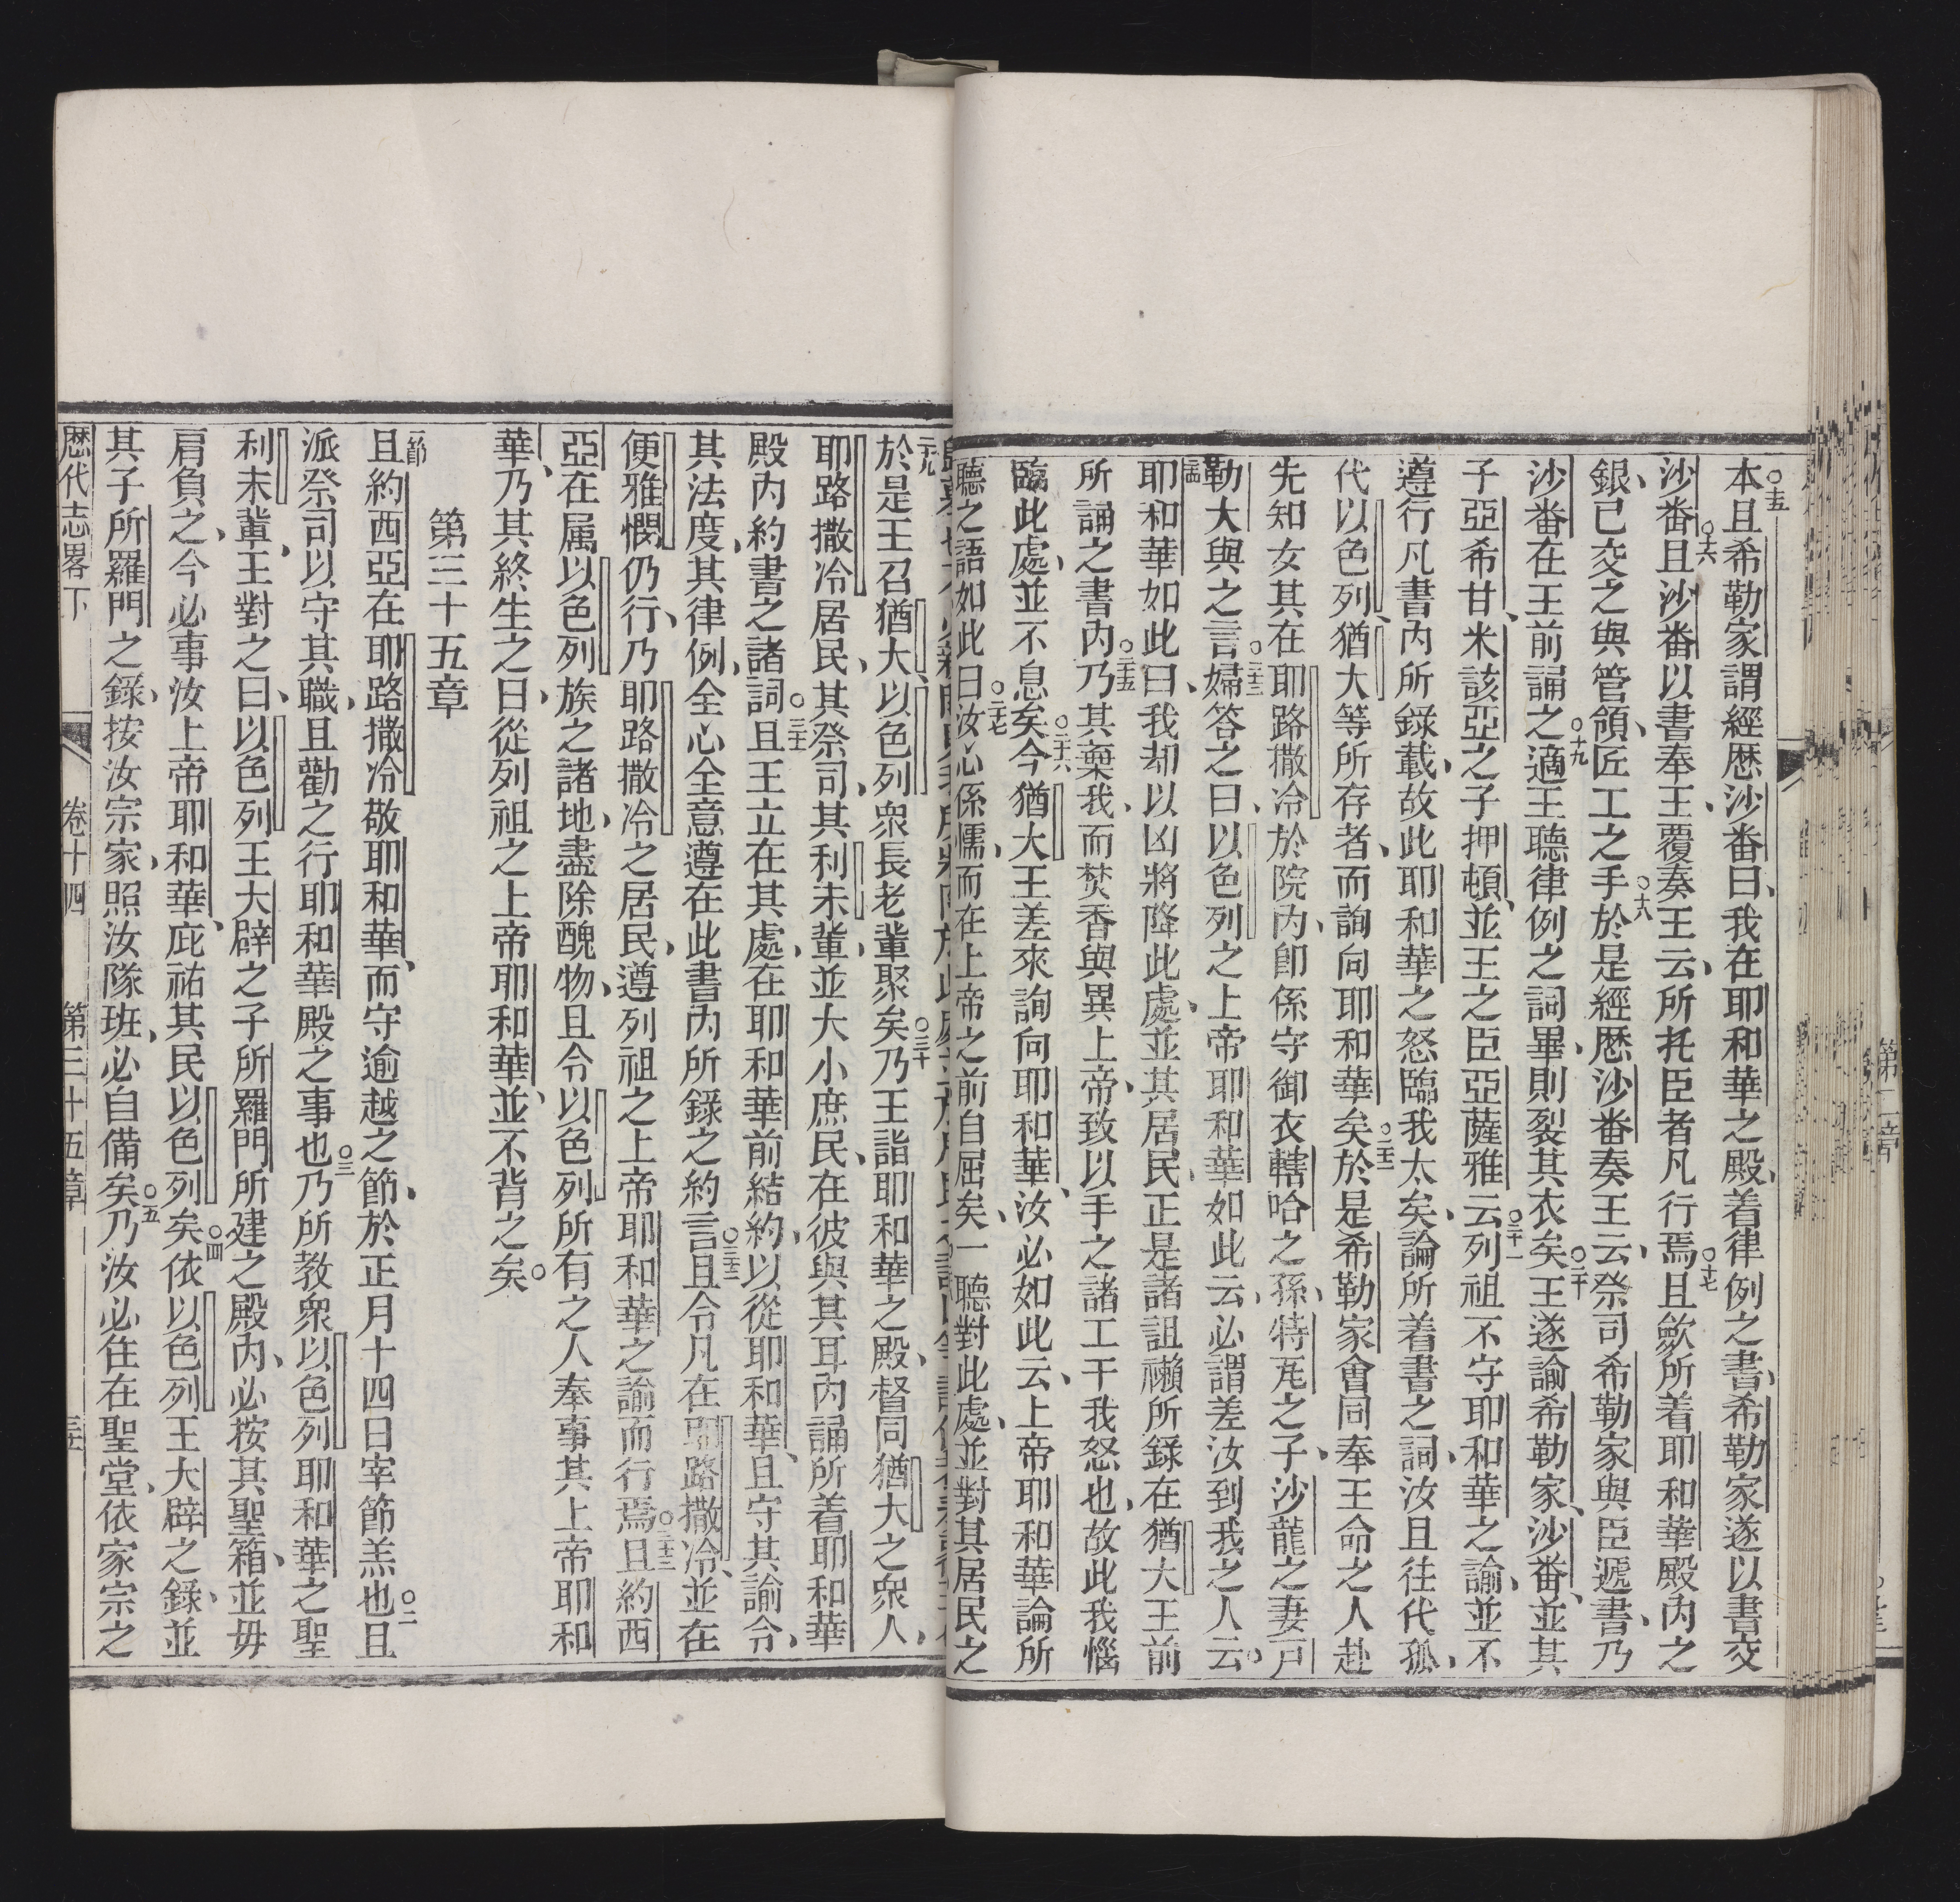 ○十五
本且希勒家謂經歷沙番曰、我在耶和華之殿、着律例之書、希勒家遂以書交
沙番○十六且沙番以書奉王、覆奏王云、所托臣者凡行焉○十七且歛所着耶和華殿內之
銀、已交之與管領、匠工之手○十八於是經歷沙番奏王云、祭司希勒家與臣遞書、乃
沙番在王前誦之○十九適王聽律例之詞畢、則裂其衣矣○二十王遂諭希勒家、沙番、並其
子亞希甘、米該亞之子押頓、並王之臣亞薩雅云○二十一列祖不守耶和華之諭、並不
遵行凡書內所錄載、故此耶和華之怒臨我太矣、論所着書之詞、汝且往代孤、
代以色列、猶大等所存者、而詢向耶和華矣○二十二於是希勒家會同奉王命之人赴
先知女其在耶路撒冷於院內、卽係守御衣轄哈之孫、特瓦之子、沙龍之妻戸
勒大與之言○二十三婦答之曰、以色列之上帝耶和華如此云、必謂差汝到我之人云。
二十四
耶和華如此曰、我却以凶將降此處、並其居民、正是諸詛懶所錄在猶大王前
所誦之書內○二十五乃其棄我、而焚香與異上帝、致以手之諸工干我怒也、故此我惱
臨此處、並不息矣○二十六今猶大王差來詢向耶和華、汝必如此云、上帝耶和華論所
聽之語如此曰○二十七汝心係懦、而在上帝之前自屈矣、一聽對此處、並對其居民之
二十九
於是王召猶大、以色列衆長老輩聚矣○三十乃王詣耶和華之殿、督同猶大之衆人、
耶路撒冷居民、其祭司、其利未輩、並大小庶民、在彼與其耳內誦所着耶和華
殿內約書之諸詞○三十一且王立在其處、在耶和華前結約、以從耶和華、且守其諭令、
其法度、其律例、全心全意遵在此書內所錄之約言○三十二且令凡在耶路撒冷、並在
便雅憫仍行、乃耶路撒冷之居民、遵列祖之上帝耶和華之諭而行焉○三十三且約西
亞在属以色列族之諸地、盡除醜物、且令以色列所有之人奉事其上帝耶和
華、乃其終生之日、從列祖之上帝耶和華、並不背之矣。
第三十五章
一節
且約西亞在耶路撒冷敬耶和華、而守逾越之節、於正月十四日宰節羔也○二且
派祭司以守其職、且勸之行耶和華殿之事也○三乃所教衆以色列耶和華之聖
利未輩、王對之曰、以色列王大辟之子所羅門所建之殿內、必按其聖箱、並毋
肩負之、今必事汝上帝耶和華、庇祐其民以色列矣○四依以色列王大辟之錄、並
其子所羅門之錄、按汝宗家、照汝隊班、必自備矣○五乃汝必往在聖堂、依家宗之
歷代志畧下 卷十四 第三十五章